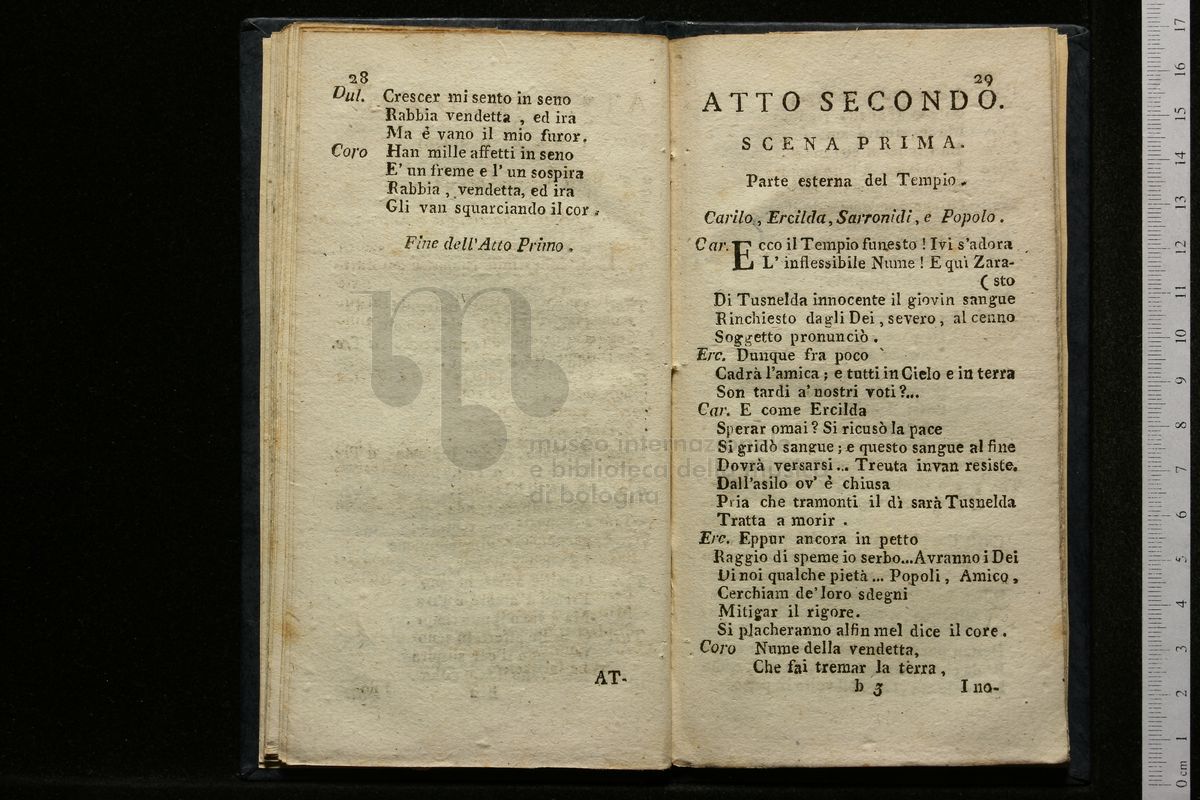 28
Dul. Crescer mi sento in seno
Rabbia vendetta , ed ira
Ma è vano il mio furor.
Coro Han mille affetti in seno
E' un freme e l' un sospira
Rabbia , vendetta, ed ira
Gli van squarciando il cor .
Fine dell'Atto Primo .
AT-
29
ATTO SECONDO.
SCENA PRIMA.
Parte esterna del Tempio .
Carilo , Ercilda, Sarronidi, e Popolo .
Car. Ecco il Tempio funesto ! Ivi s'adora
L' inflessibile Nume ! E quì Zara-
( sto
Di Tusnelda innocente il giovin sangue
Rinchiesto dagli Dei , severo , al cenno
Soggetto pronunciò .
Erc. Dunque fra poco
Cadrà l'amica ; e tutti in Cielo e in terra
Son tardi a' nostri voti ?...
Car. E come Ercilda
Sperar omai ? Si ricusò la pace
Si gridò sangue ; e questo sangue al fine
Dovrà versarsi ... Treuta invan resiste.
Dall'asilo ov' è chiusa
Pria che tramonti il dì sarà Tusnelda
Tratta a morir .
Erc. Eppur ancora in petto
Raggio di speme io serbo...Avranno i Dei
Di noi qualche pietà ... Popoli , Amico ,
Cerchiam de' loro sdegni
Mitigar il rigore.
Si placheranno alfin mel dice il core .
Coro Nume della vendetta,
Che fai tremar la tèrra ,
b 3 I no-
museo internazionale
e biblioteca della musica
di bologna
0 cm 1 2 3 4 5 6 7 8 9 10 11 12 13 14 15 16 17